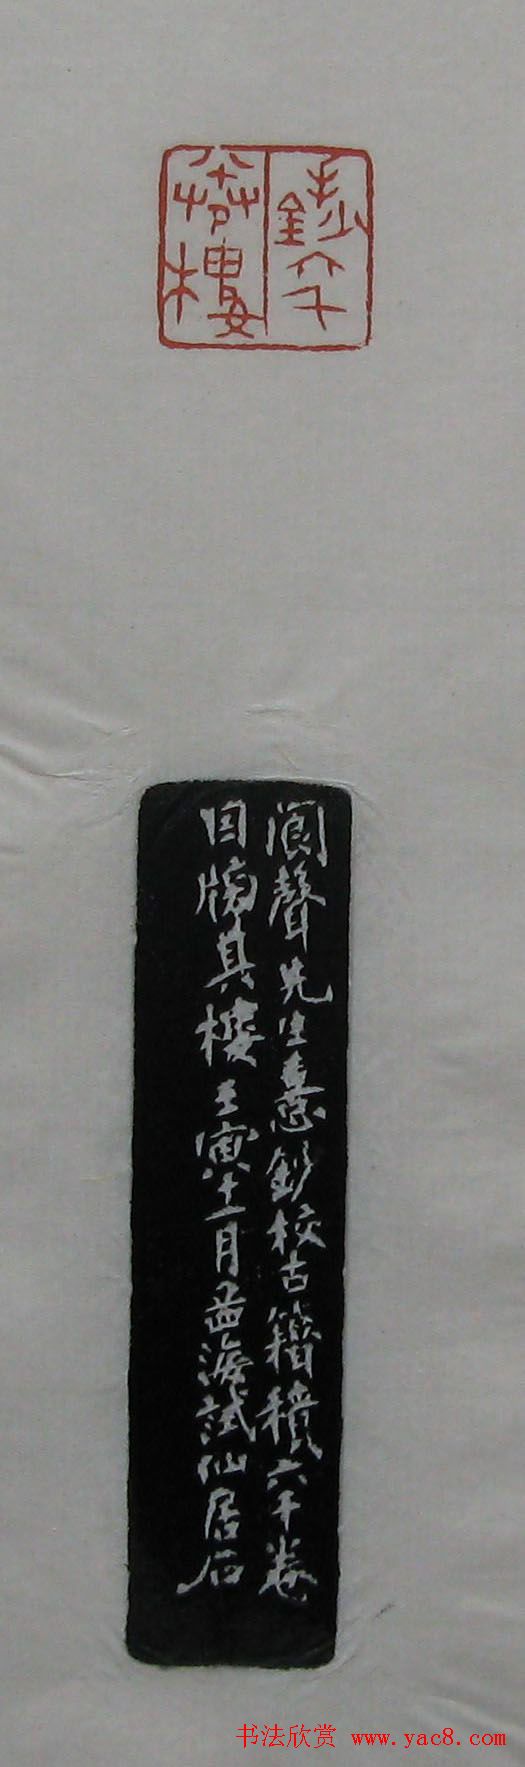 手鈔六千
卷樓
閬聲先生憙鈔校古籍積六千卷
因牓其樓壬寅十一月孟海試仙居石
书法欣赏 www.yac8.com